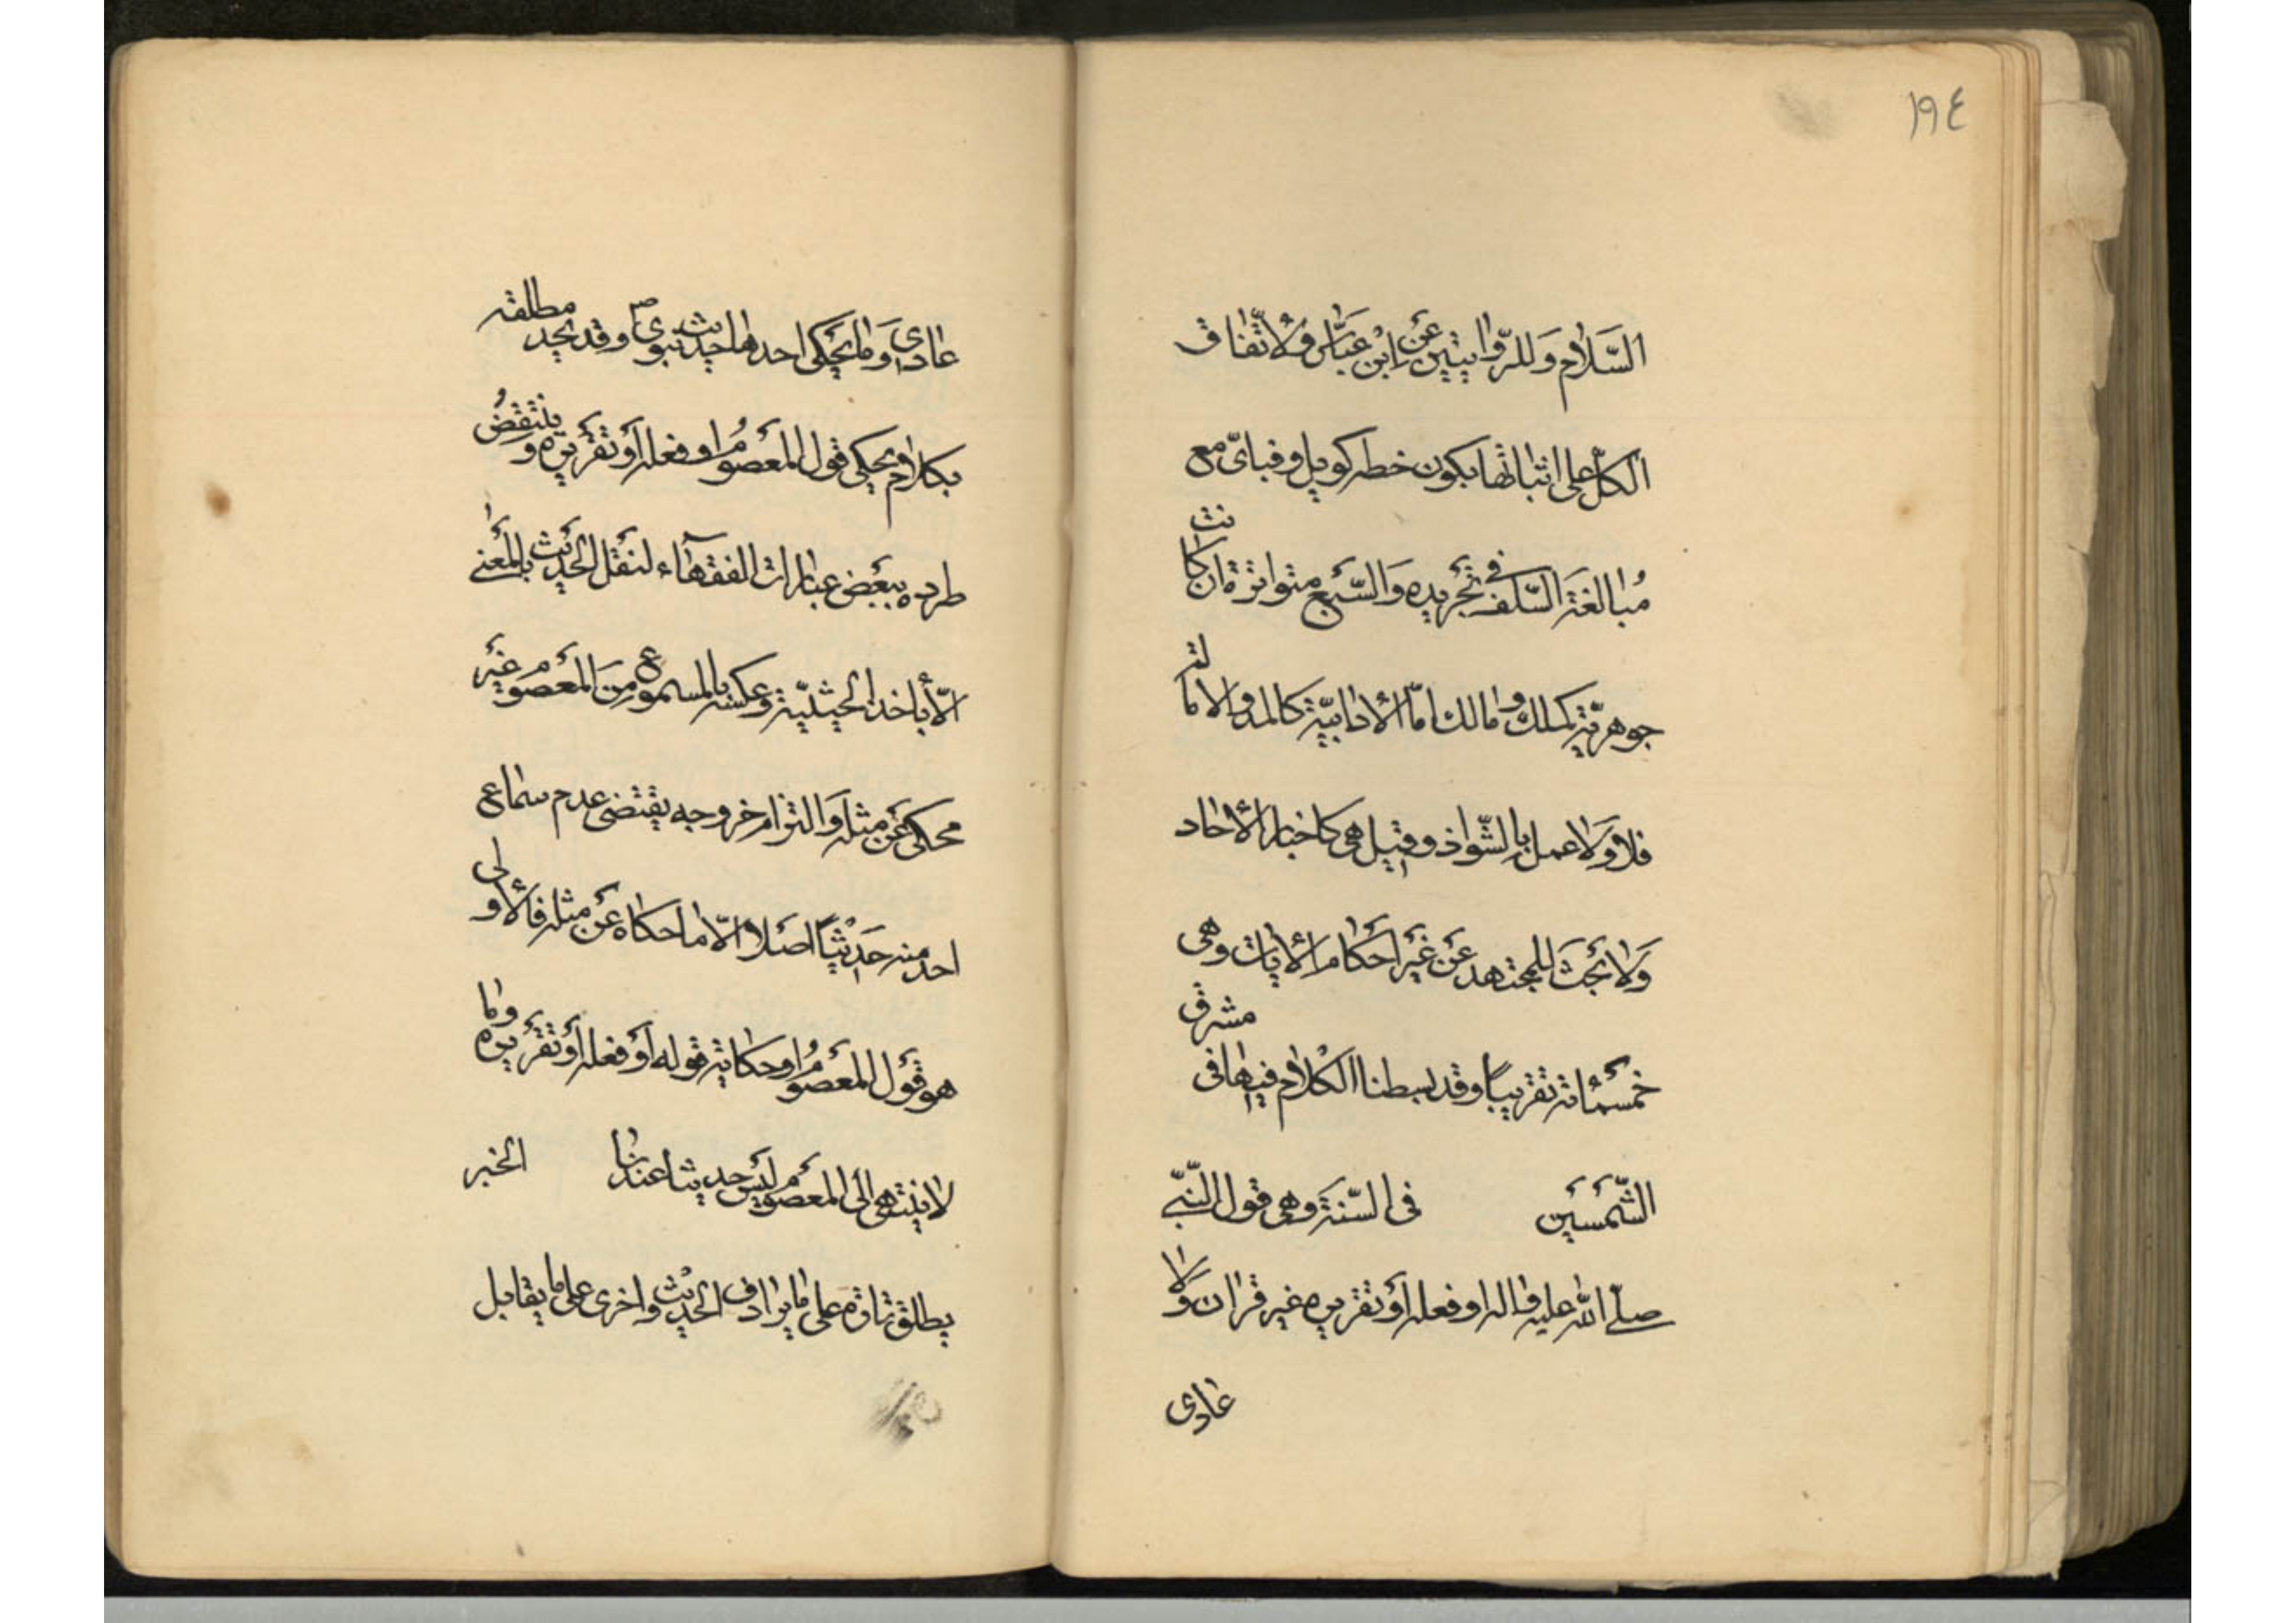 ١٩٤
السَّلام وَللرّوايتين عَن ابْن عَبّاس وَلاتّفاق
الكلّ على اثباتها بكون خطر كويل وفباىّ مع
مُبالغة السّلف فى تجْريده وَالسّبع متواترة ان كانت
جوهريّة كملك ومالك امّا الأدائيّة كالمد والامالة
فلا وَلا عمل بالشّواذ وقيل هى كاخبار الأحاد
وَلا بحْث للمجتهد عَنْ غيْر احْكام الأيات وهى
خمسْمائة تقريباً وقد بسطنا الكلام فيها فى مشرق
الشّمْسَيْن فى السّنة وهى قول النّبىّ
صلّى اللّه عليه واله او فعله اوْ تقريره غير قران وَلا
عادى
عادى وَما يحْكى احدها حديث نبوىّ ص وقد يحد مطلقه
بكلام يحكى قول المعْصومُ او فعله اوْ تقْريره وينْتقضُ
طرده ببعْض عبارات الفقهآء لنقْل الحديْث بالمعْنى
الاّ بأخذ الحيثيّة وعكسه بالمسموع منَ المعْصوم غيْر
محكى عَنْ مثله وَالتزام خروجه يقتضى عدم سماع
احد منه حَديْثاً اصْلا الاّ ما حكاه عَنْ مثله فالأولى
هو قوْل المعْصومُ او حكاية قوله اوْ فعله اوْ تقْريره وما
لا ينتهى الى المعْصوم ليْس حديثا عندنا الخبر
يطلق تارة على ما يرادف الحديْث واخرى على ما يقابل